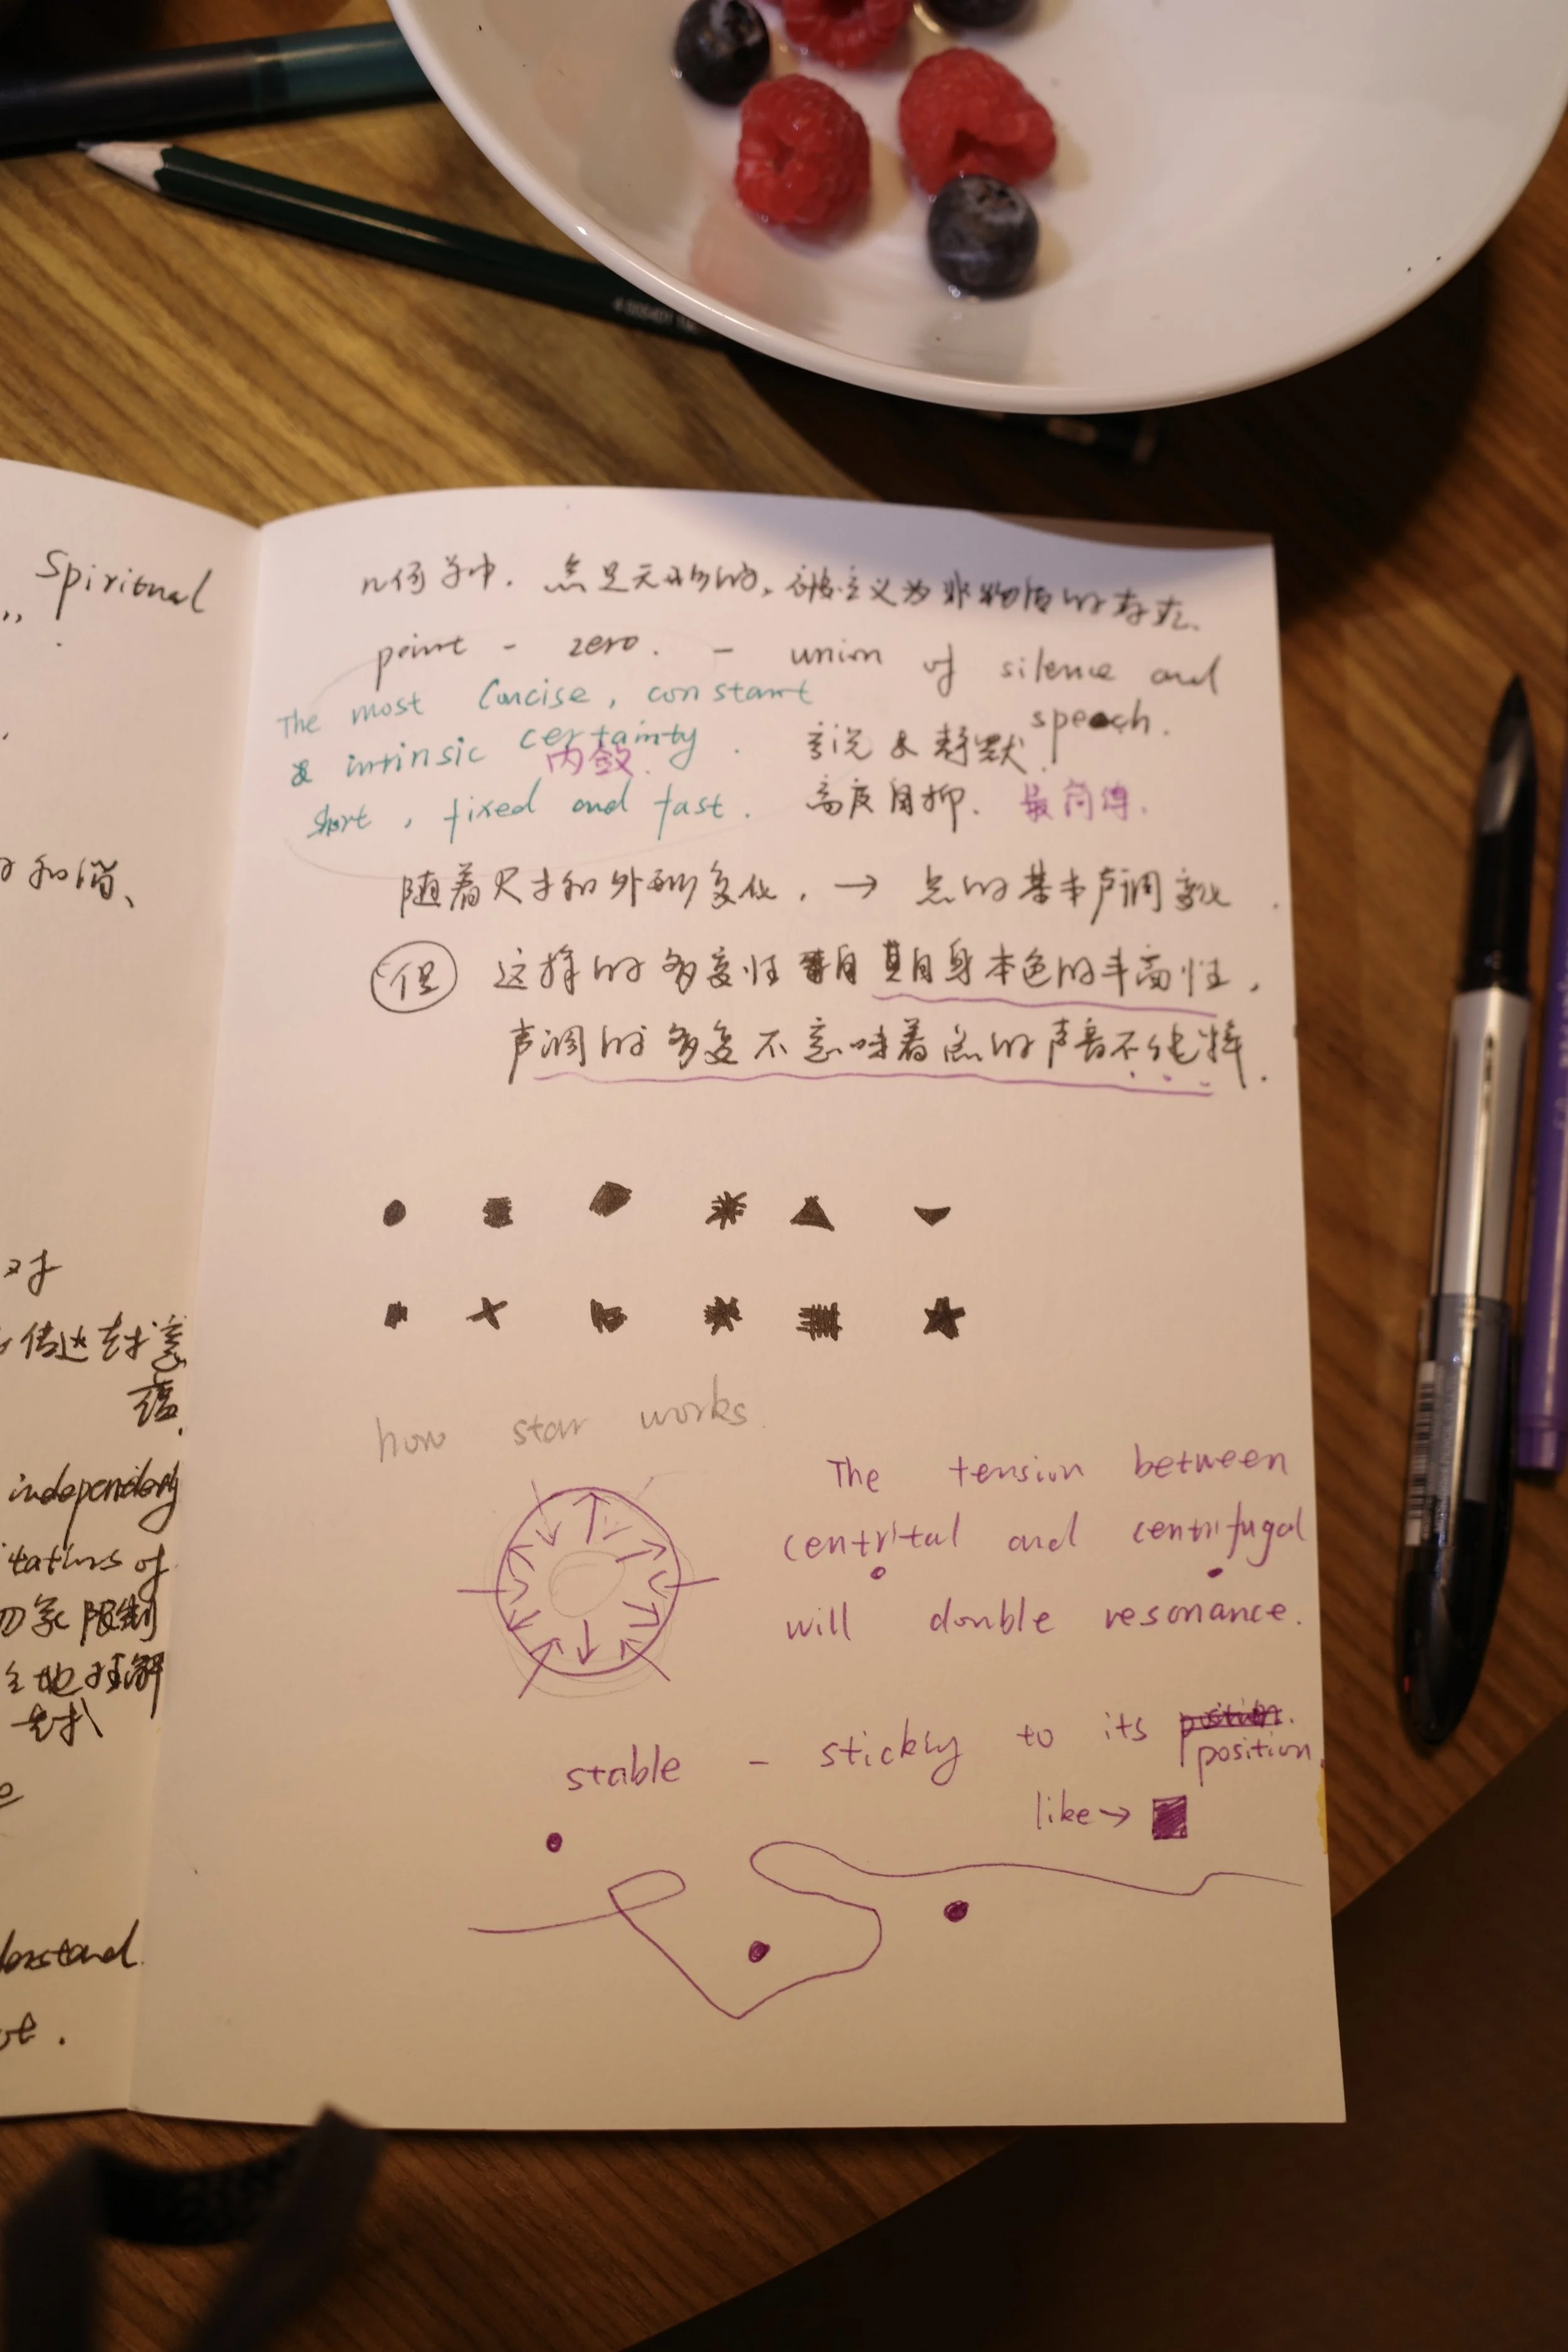 Spiritual
和谐、
对
传达艺术意
蕴.
independently
of
限制
地理解
艺术
几何学中. 点是无形的, 被定义为非物质的存在.
point - zero. - union of silence and
speech.
The most Concise, constant
& intrinsic certainty.
内敛.
short, fixed and fast.
言说 & 静默.
高度自抑. 最简洁.
随着尺寸和外形变化, → 点的基本声调变化.
但 这样的多变性 自 其自身本色的丰富性,
声调的多变不意味着点的声音不纯粹.
how star works.
The tension between
centrital and centrifugal
will double resonance.
stable - stickly to its position.
position.
like →